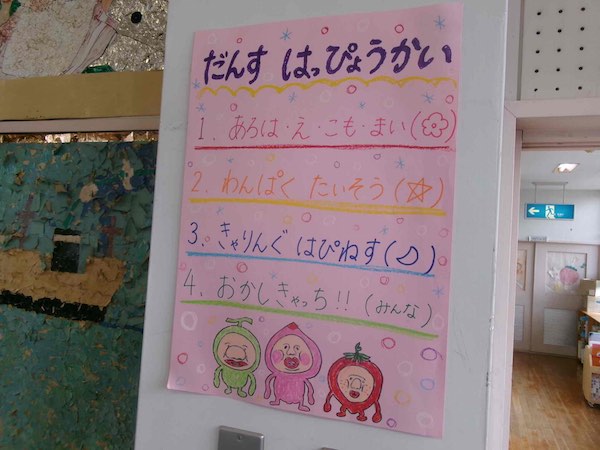 だんす はっぴょうかい
1. あろは・え・こも・まい(✿)
2. わんぱく たいそう(☆)
3. きゃりんぐ はぴねす(♪)
4. おかしきゃっち!!(みんな)